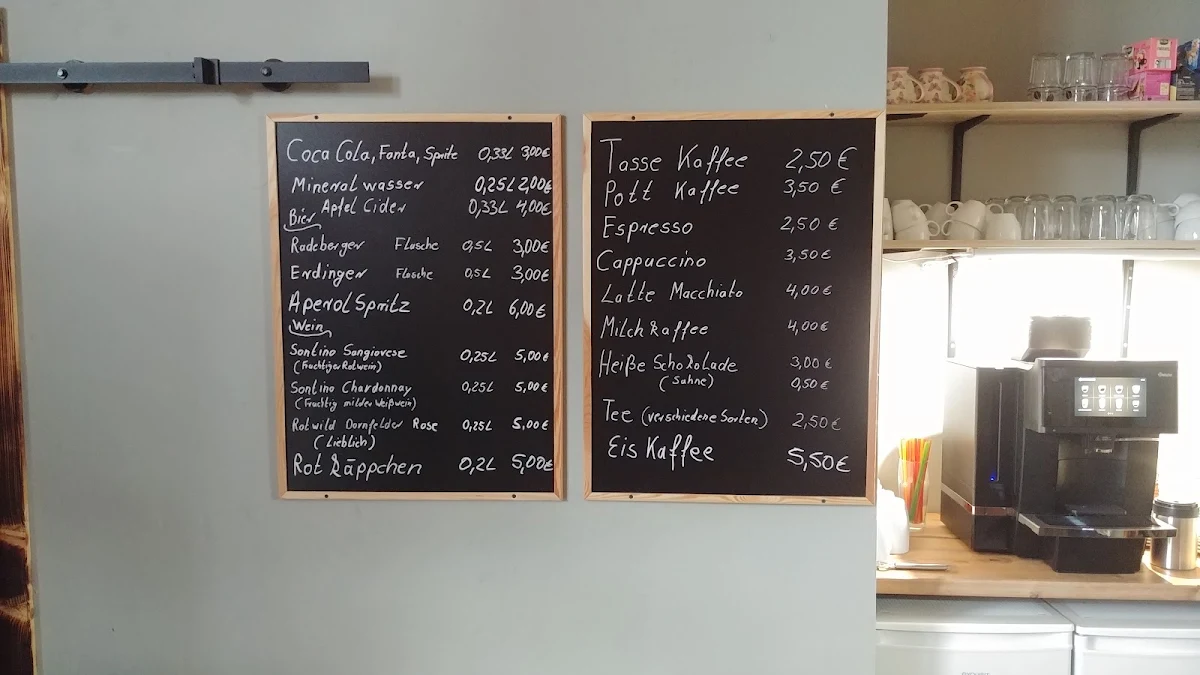 Coca Cola, Fanta, Sprite 0,33L 3,00€
Mineralwasser 0,25L 2,00€
Apfel Cider 0,33L 4,00€
Bier
Radeberger Flasche 0,5L 3,00€
Erdinger Flasche 0,5L 3,00€
Aperol Spritz 0,2L 6,00€
Wein
Sontino Sangiovese 0,25L 5,00€
(Fruchtiger Rotwein)
Sontino Chardonnay 0,25L 5,00€
(Fruchtig milder Weißwein)
Rotwild Dornfelder Rose 0,25L 5,00€
(Lieblich)
Rot Käppchen 0,2L 5,00€
Tasse Kaffee 2,50 €
Pott Kaffee 3,50 €
Espresso 2,50 €
Cappuccino 3,50 €
Latte Macchiato 4,00 €
Milchkaffee 4,00 €
Heiße Schokolade 3,00 €
(Sahne) 0,50 €
Tee (verschiedene Sorten) 2,50 €
Eis Kaffee 5,50 €